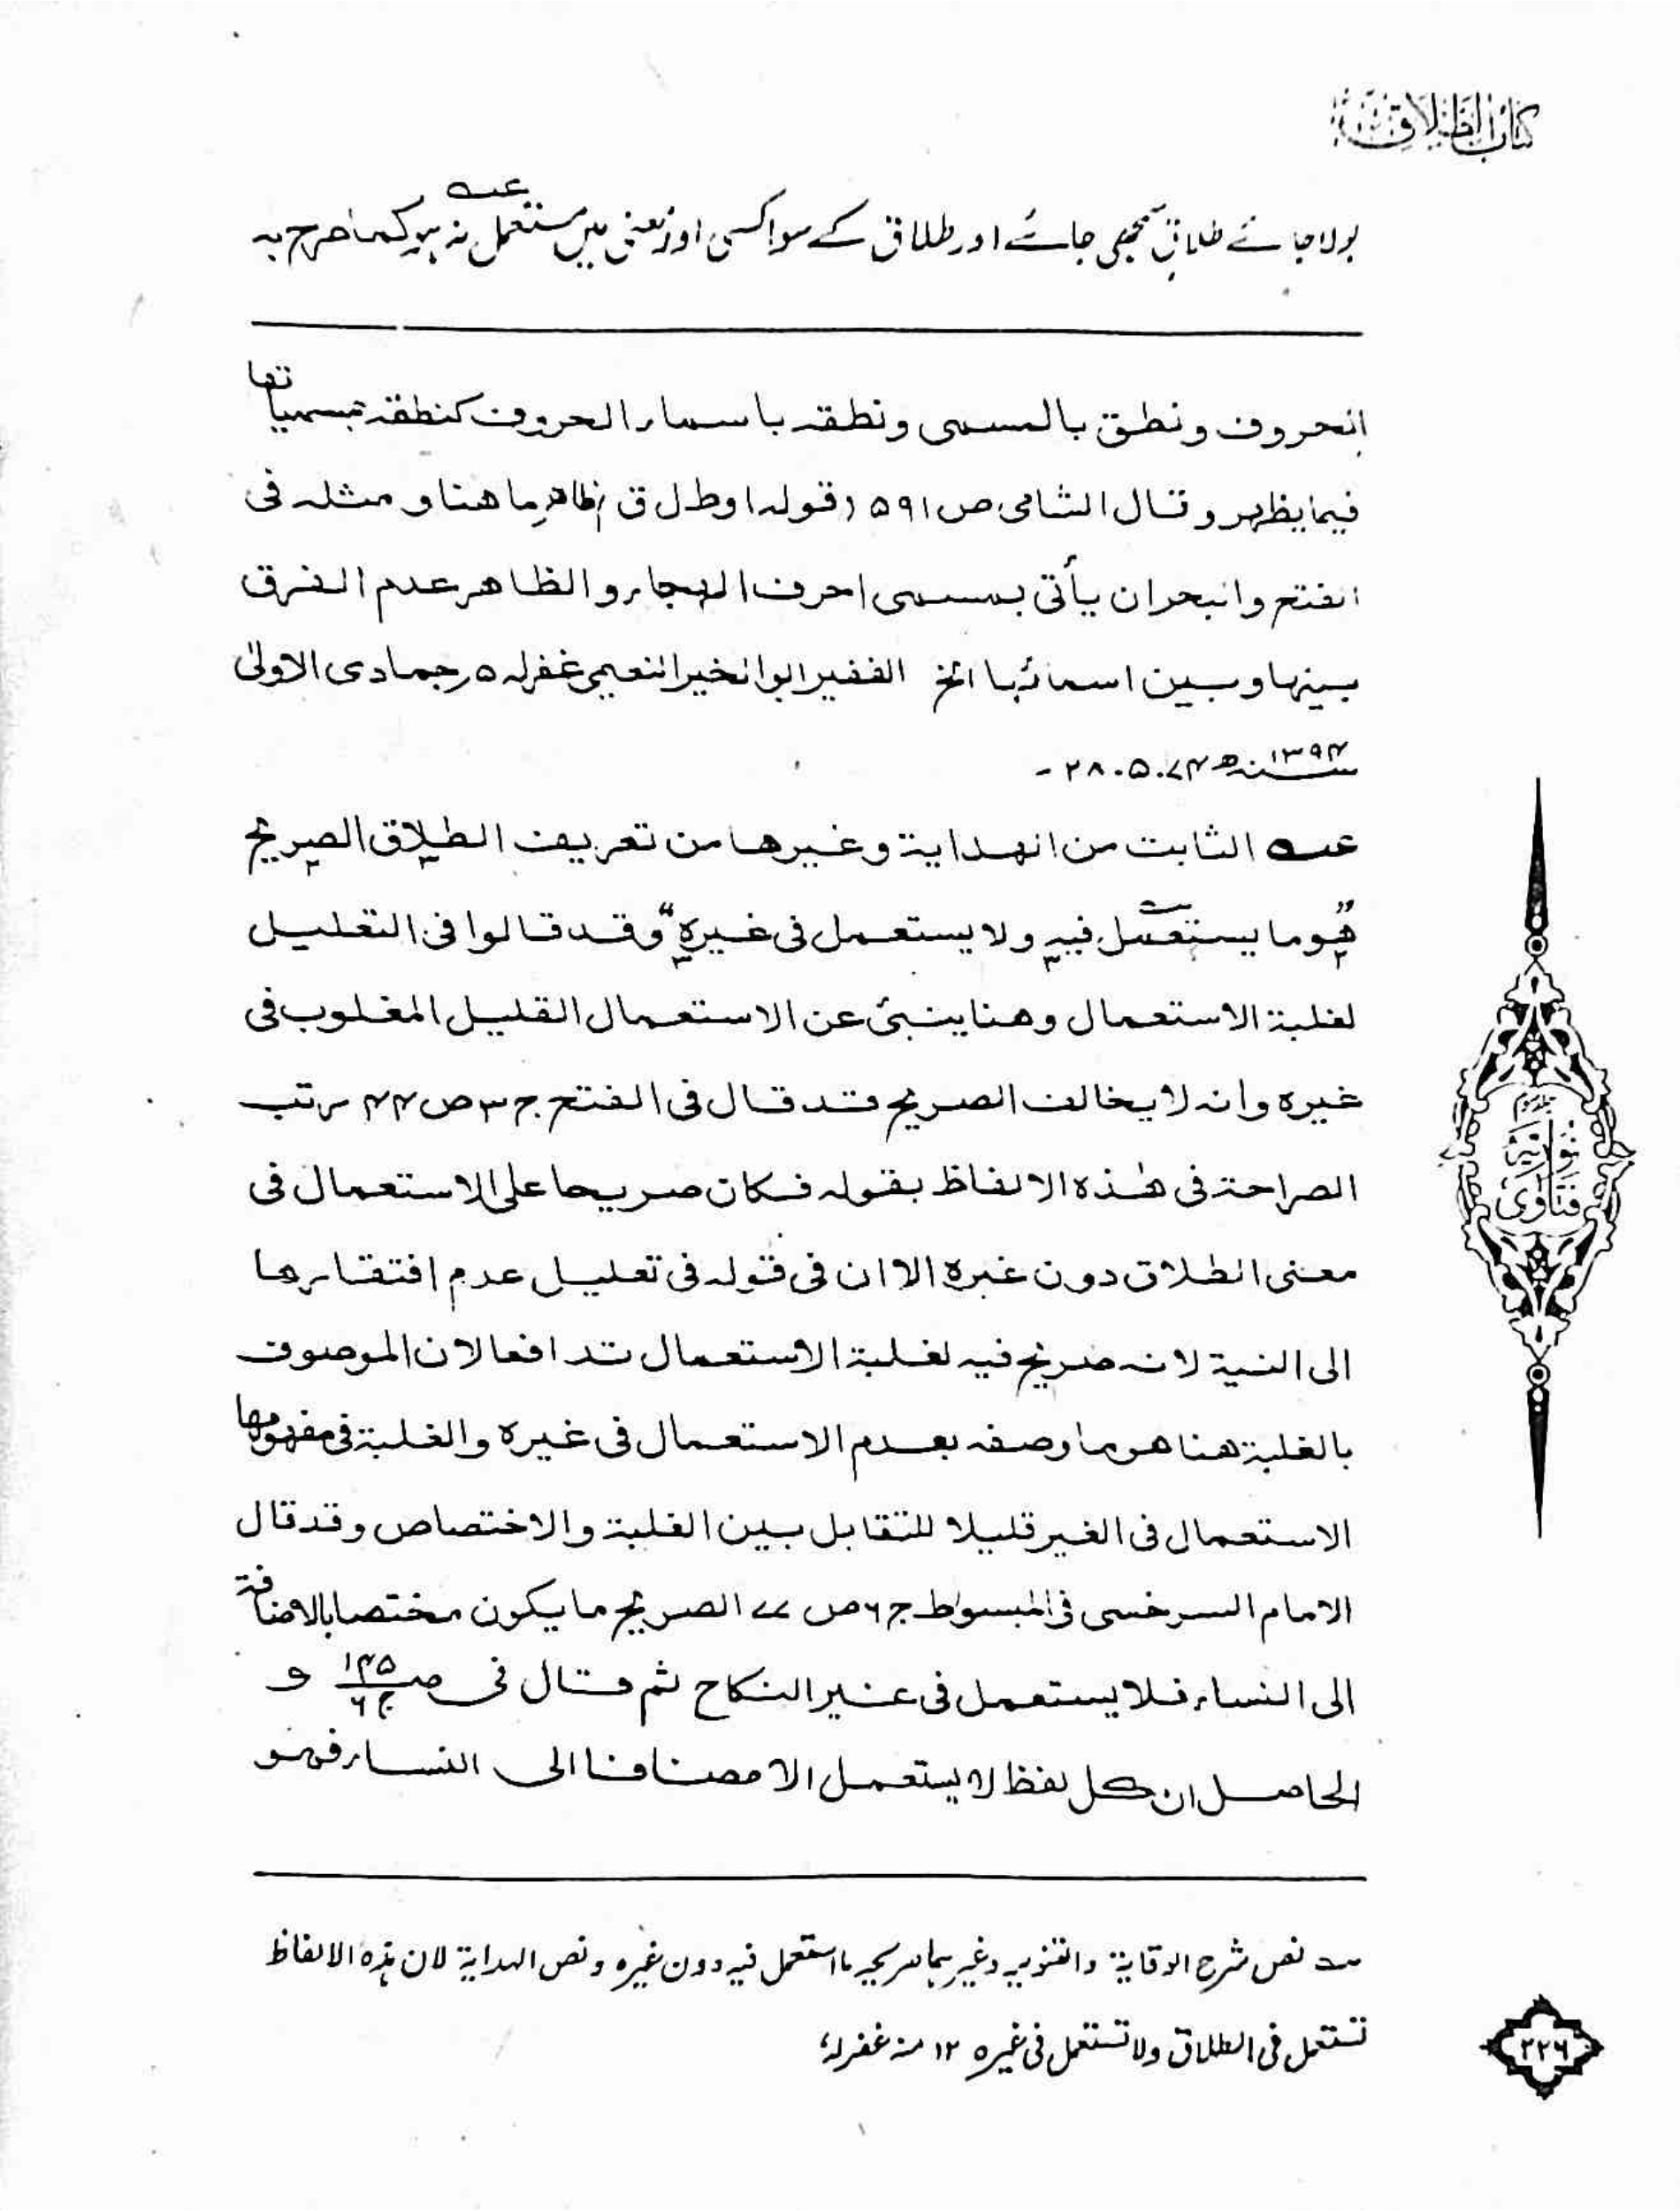 کتاب الطلاق
بولا جائے طلاق سمجھی جائے اور طلاق کے سوا کسی اور معنی میں مستعمل نہ ہو کما صرح بہ
عـــہ
الحروف ونطق بالمسمى ونطقه باسماء الحروف كنطقه بمسمياتها
فيما يظهر وقال الشامى ص ۵۹۱ (قوله او ط ل ق) ظاهر ما هنا و مثله فى
الفتح والبحر ان يأتى بمسمى احرف الهجاء والظاهر عدم الفرق
بينها وبين اسمائها الخ الفقير ابوالخير النعيمى غفرلہ ۵ رجمادى الاولىٰ
سنہ ۱۳۹۴ھ ۷۴.۵.۲۸ -
عـــہ الثابت من الهداية وغيرها من تعريف الطلاق الصريح
"هو ما يستعمل فيه ولا يستعمل فى غيره" وقد قالوا فى التعليل
لغلبة الاستعمال وهنا ينبئ عن الاستعمال القليل المغلوب فى
غيره وانه لا يخالف الصريح قد قال فى الفتح ج ۳ ص ۴۴ رتب
الصراحة فى هٰذه الالفاظ بقوله فكان صريحا على الاستعمال فى
معنى الطلاق دون غيره الا ان فى قوله فى تعليل عدم افتقارها
الى النية لانه صريح فيه لغلبة الاستعمال تدافعا لان الموصوف
بالغلبة هنا هو ما وصفه بعدم الاستعمال فى غيره والغلبة فى مفهومها
الاستعمال فى الغير قليلا للتقابل بين الغلبة والاختصاص وقد قال
الامام السرخسى فى المبسوط ج ۶ ص ۷۷ الصريح ما يكون مختصا بالاضافة
الى النساء فلا يستعمل فى غير النكاح ثم قال فى صـ ۱۴۵ ج ۶ و
الحاصل ان كل لفظ لا يستعمل الا مضافا الى النساء فهو
نص شرح الوقاية والتنوير وغيرهما صريحه ما استعمل فيه دون غيره ونص الهداية لان هذه الالفاظ
تستعمل فى الطلاق ولا تستعمل فى غيره ۱۲ منہ غفرلہ
جلد سوم
فتاویٰ نوریہ
۲۲۶